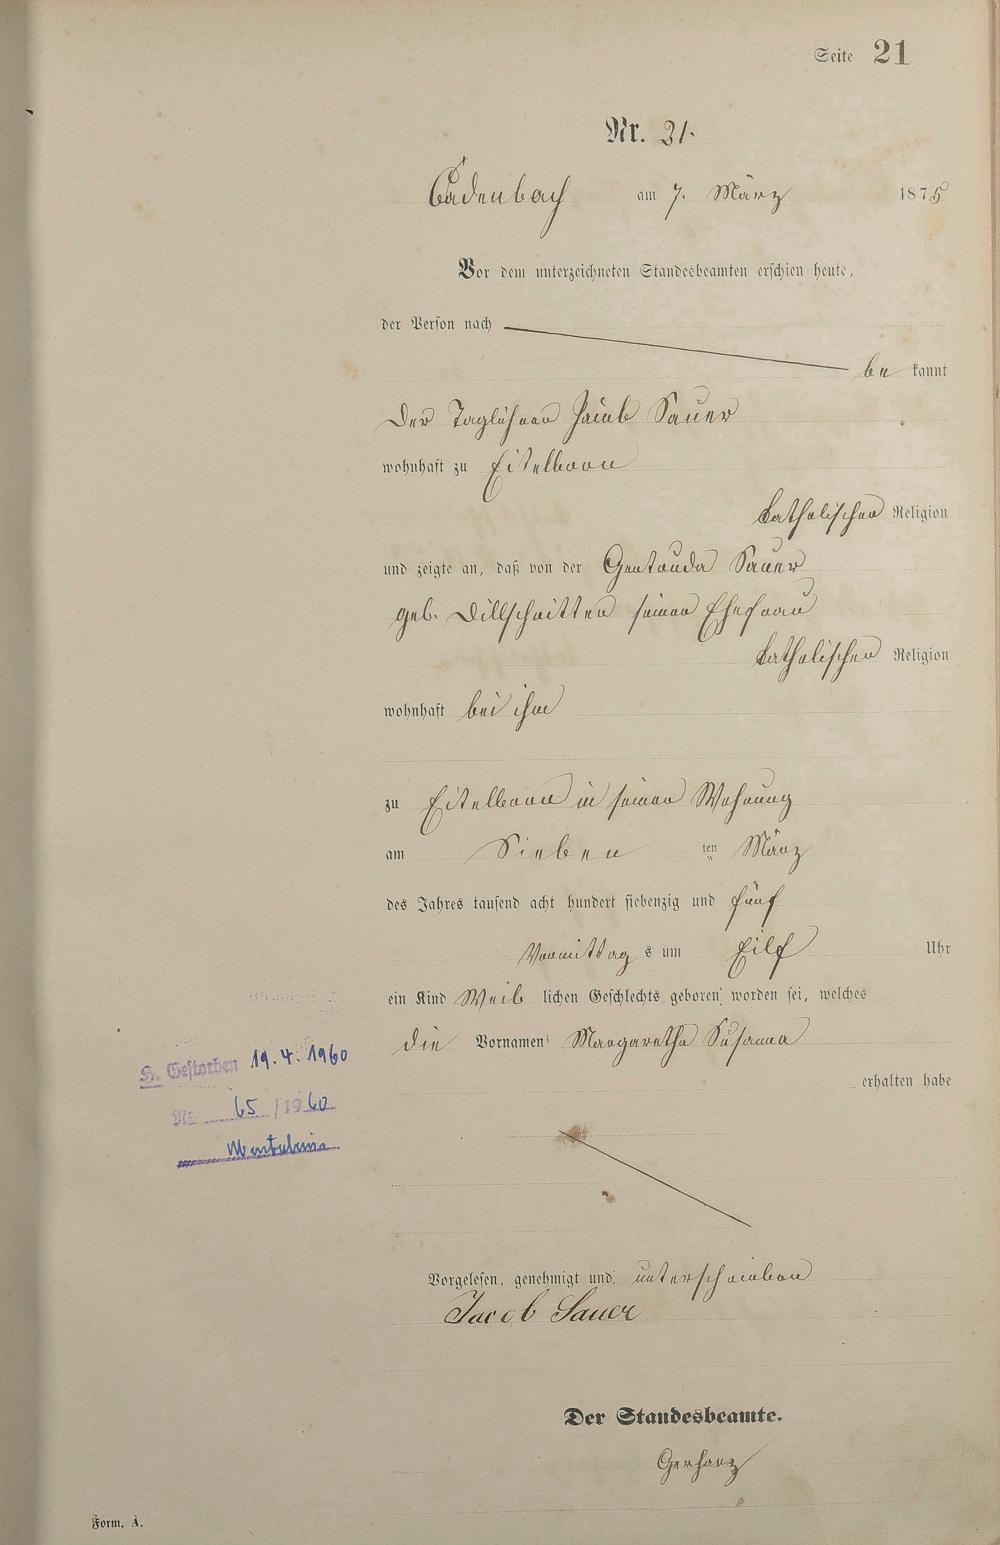 Seite 21
Nr. 21.
Cadenbach am 7. März 1875
Vor dem unterzeichneten Standesbeamten erschien heute,
der Person nach
be kannt
der Taglöhner Jacob Sauer
wohnhaft zu Eitelborn
katholischer Religion
und zeigte an, daß von der Gertruda Sauer
geb. Dillschnitter seiner Ehefrau
katholischer Religion
wohnhaft bei ihm
zu Eitelborn in seiner Wohnung
am Sieben ten März
des Jahres tausend acht hundert siebenzig und fünf
Vormittag s um Eilf Uhr
ein Kind Weib lichen Geschlechts geboren worden sei, welches
die Vornamen Margaretha Susanna
erhalten habe
H. Gestorben 19.4.1960
Nr. 65/1960
Vorgelesen, genehmigt und unterschrieben
Jacob Sauer
Der Standesbeamte.
Gerharz
Form. A.